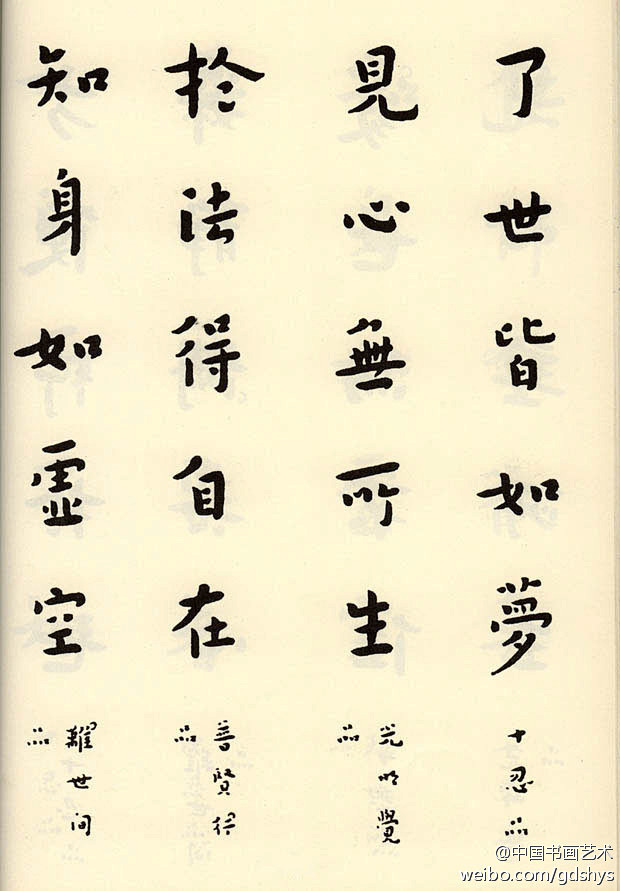 了世皆如夢
十忍品
見心無所生
光明覺
品
於法得自在
普賢行
品
知身如虛空
離世間
品
@中国书画艺术
weibo.com/gdshys